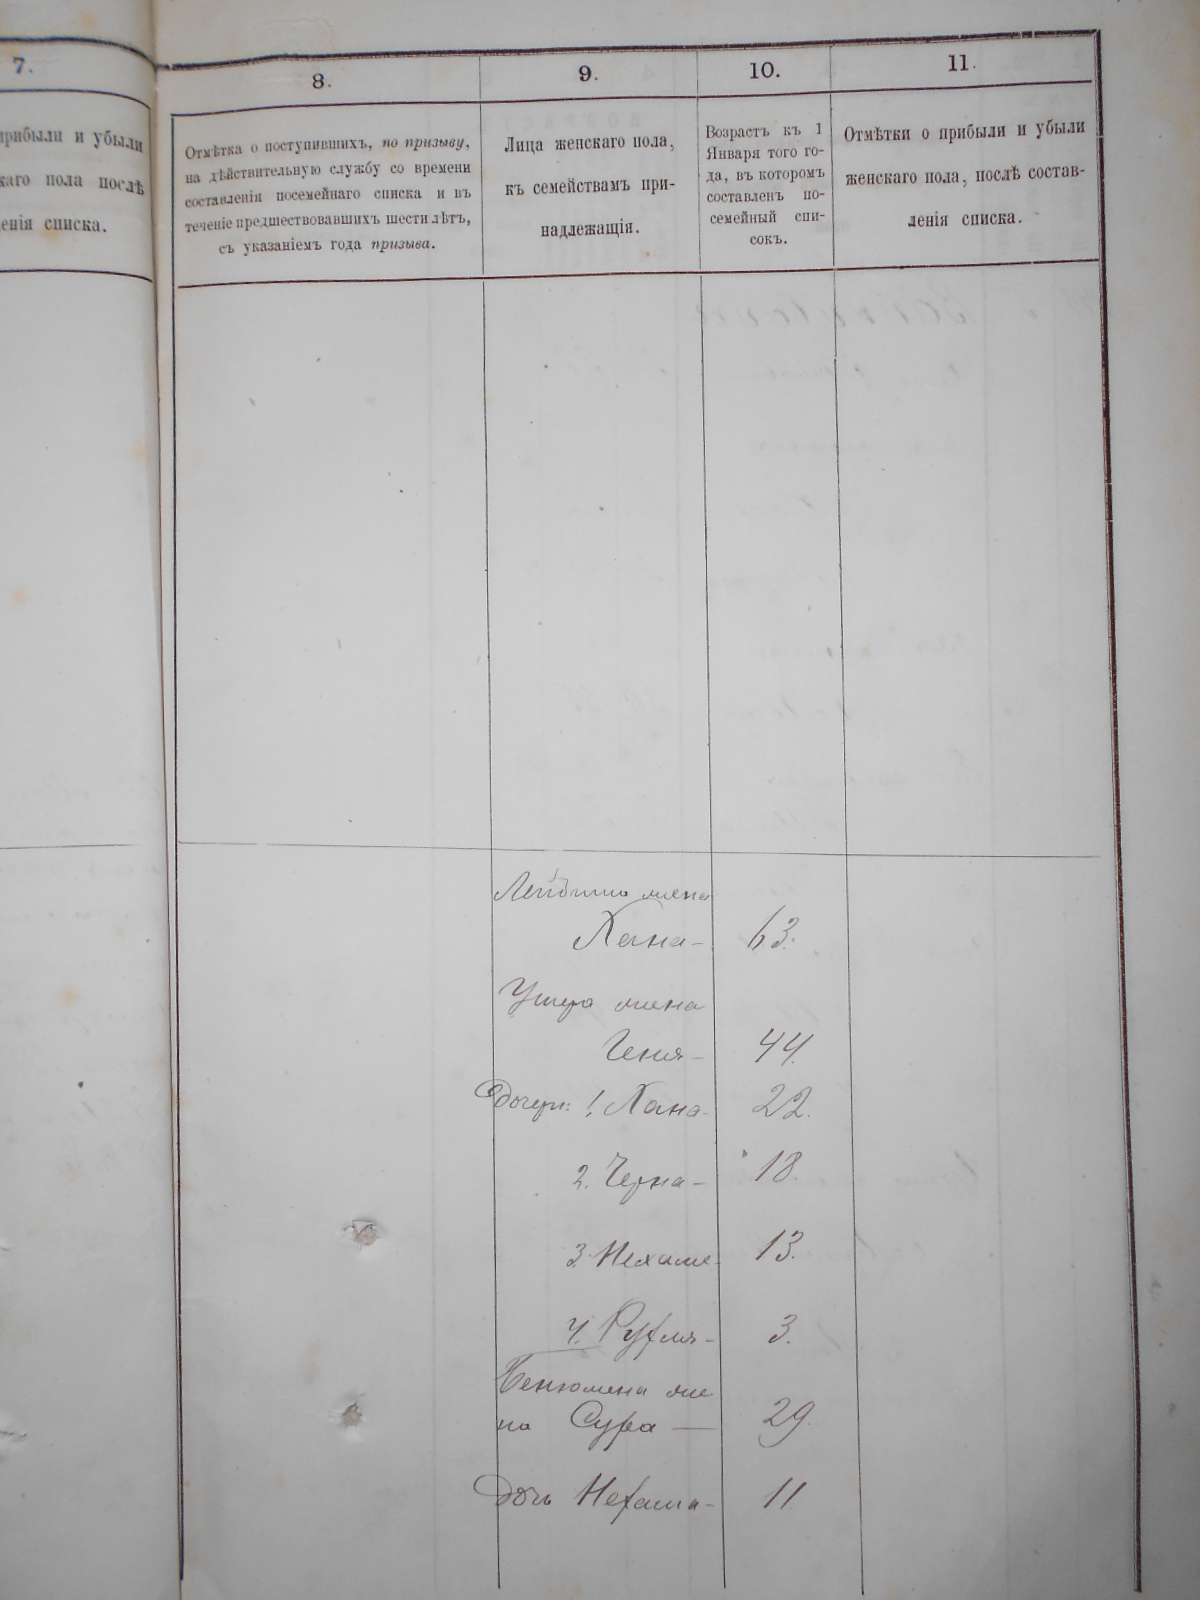 7.
прибыли и убыли
каго пола послѣ
енія списка.
8.
Отмѣтка о поступившихъ, по призыву,
на дѣйствительную службу со времени
составленія посемейнаго списка и въ
теченіе предшествовавшихъ шести лѣтъ,
съ указаніемъ года призыва.
9.
Лица женскаго пола,
къ семействамъ при-
надлежащія.
10.
Возрастъ къ 1
Января того го-
да, въ которомъ
составленъ по-
семейный спи-
сокъ.
11.
Отмѣтки о прибыли и убыли
женскаго пола, послѣ состав-
ленія списка.
жена
Хана - 63.
Ушера жена
Геня - 44.
Дочери: 1. Хана - 22.
2. Черна - 18.
3. Нехаме - 13.
4. Рухля - 3.
Бенюмена же
на Сура — 29.
Дочь Нехама - 11